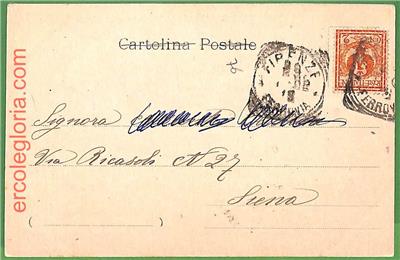 Cartolina Postale
FIRENZE
FERROVIA
Signora
Via Ricasoli N 27
Siena
ercolegloria.com